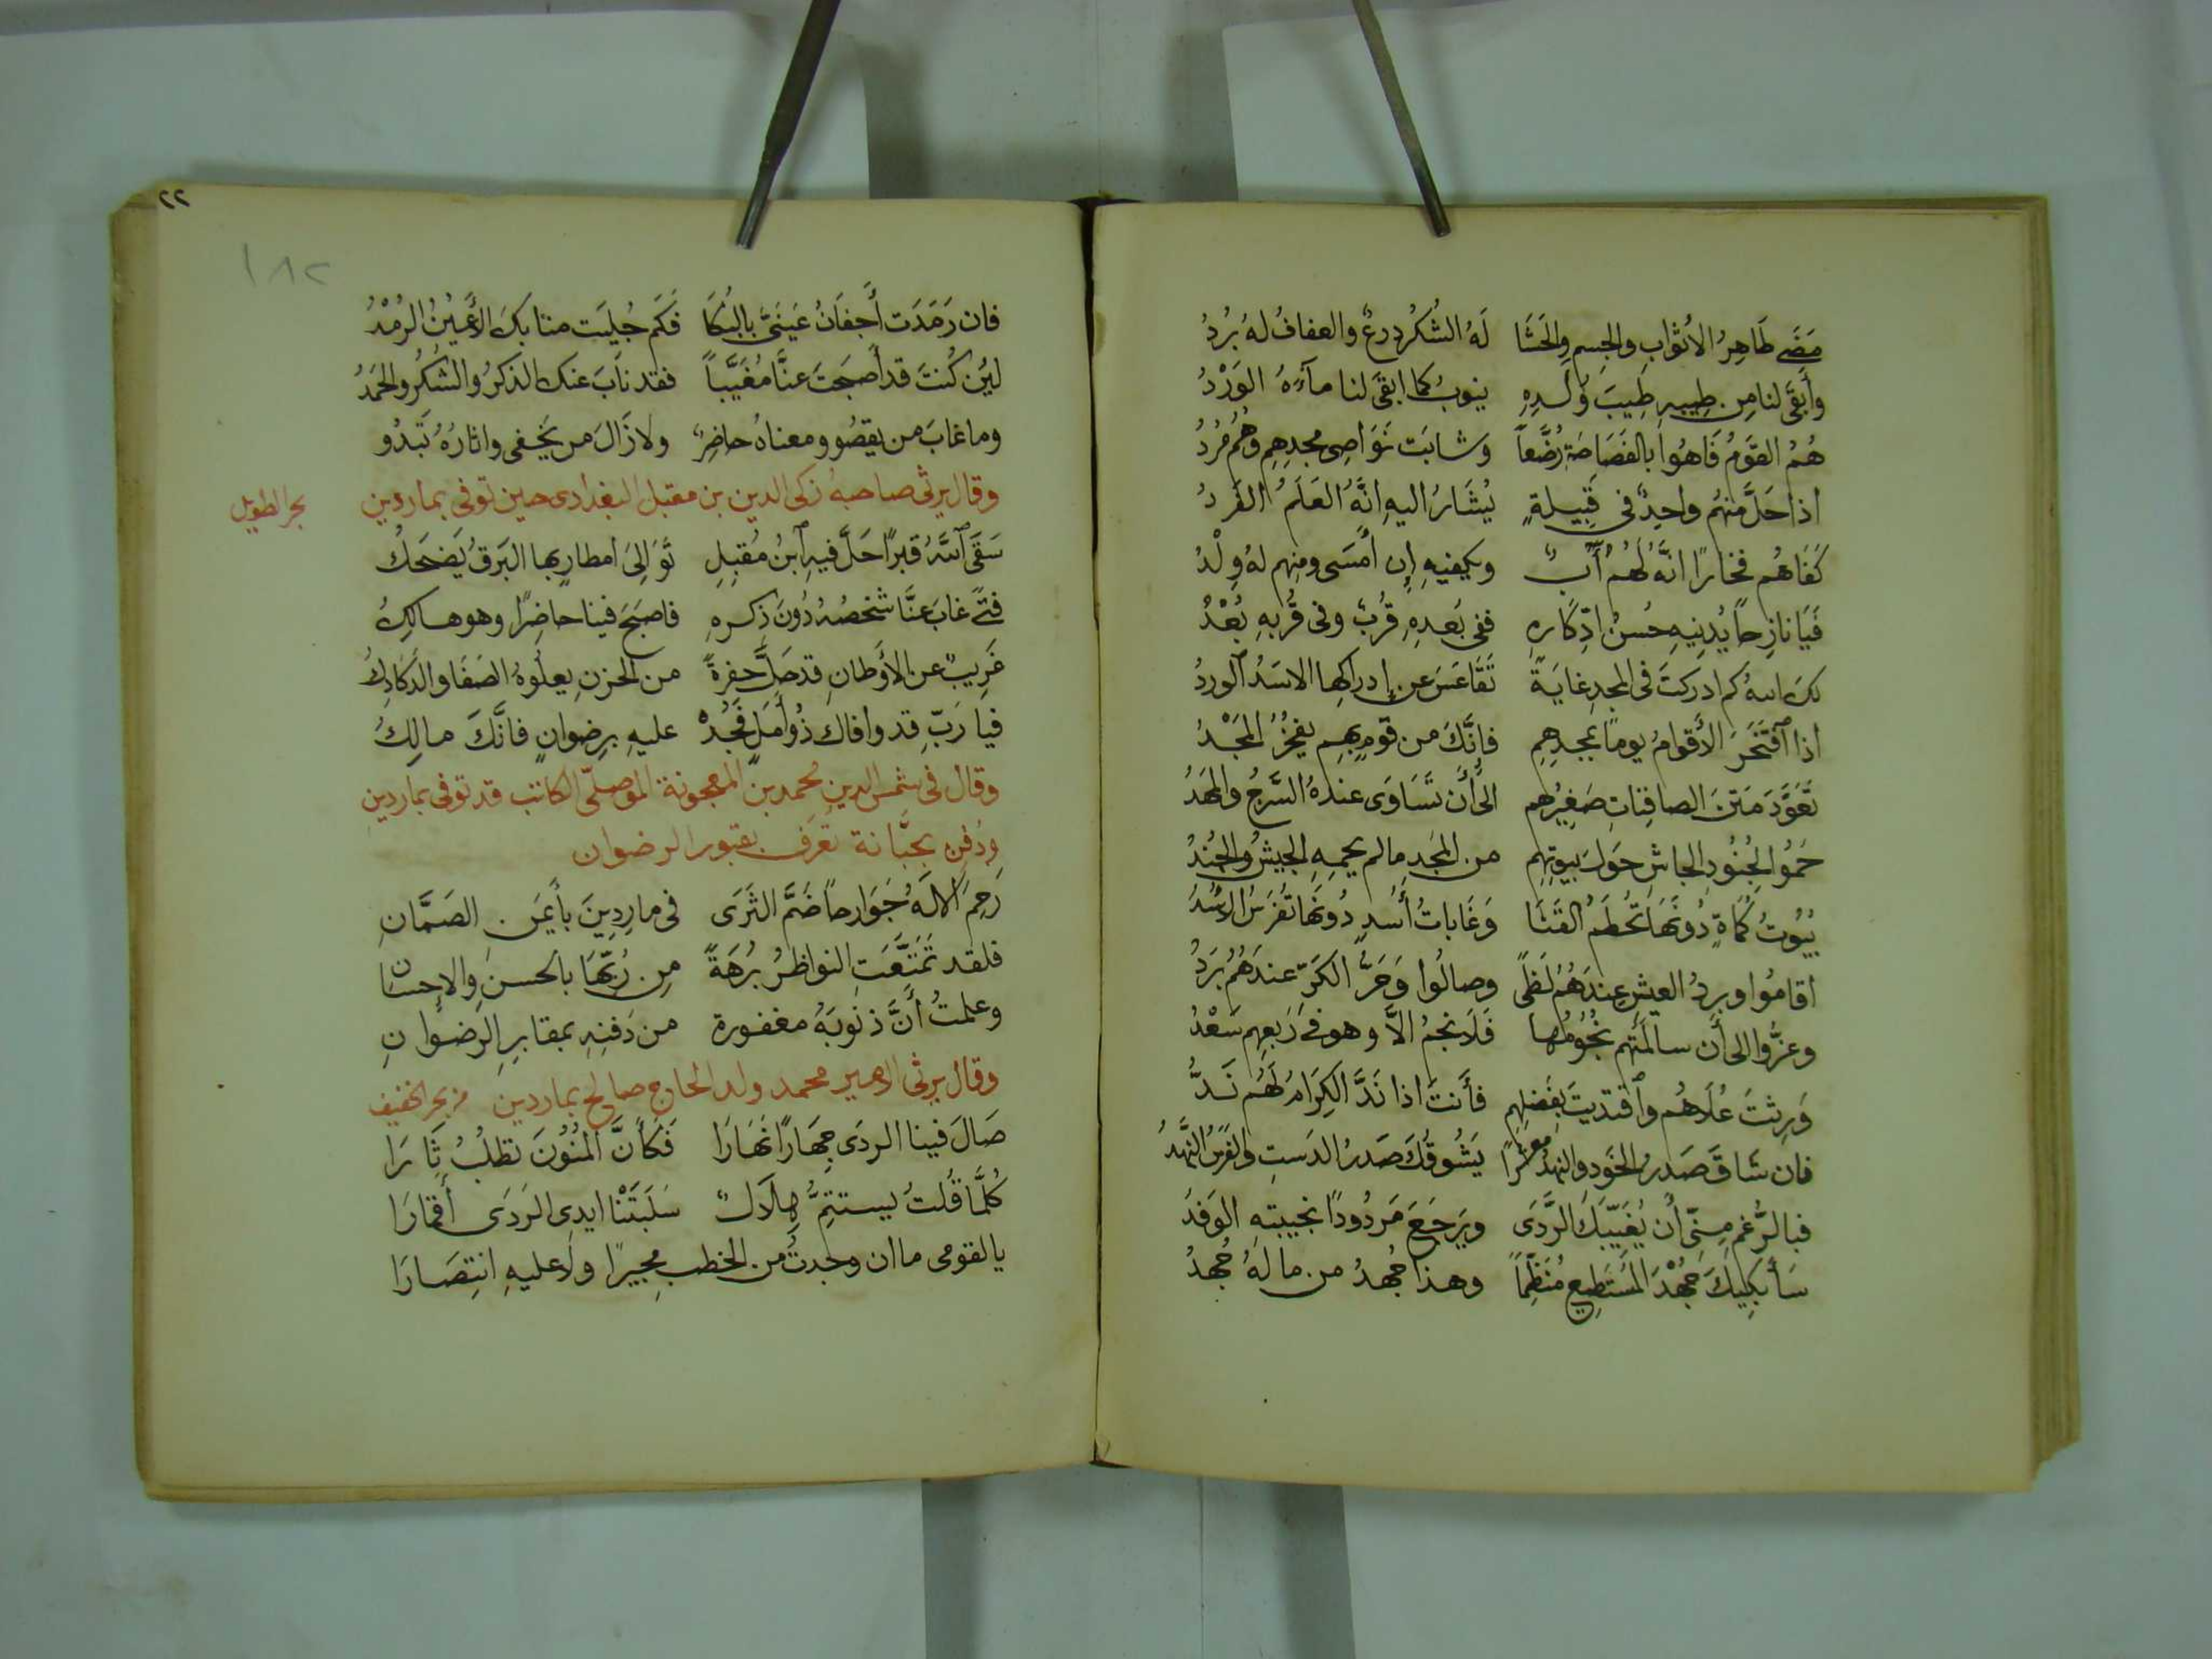 مَضَى طَاهِرُ الأثوابِ والجِسمِ والحَشَا لَهُ الشُكرُ دِرعٌ والعفافُ لهُ بُردُ
وأبقَى لنا مِن طِيبهِ طِيبَ وُلدِهِ ينوبُ كما ابقَى لنا مآءَهُ الوَرْدُ
هُمُ القَومُ فَاهُوا بالفَصَاحَةِ رُضَّعاً وشابَت نَوَاصِى مجدِهِم وهُمُ مُردُ
اذا حَلَّ منهُم واحِدٌ فى قَبِيلةٍ يُشَارُ اليهِ انَّهُ العَلَمُ الفَردُ
كَفَاهُم فخارًا انَّهُ لَهُم أَبٌ ويكفيهِ إن أمسَى ومِنهم لهُ وِلْدُ
فَيَا نازِحاً يُدنِيهِ حُسنُ ادِّكارِهِ ففى بُعدِهِ قُربٌ وفى قُربهِ بُعْدُ
لكَ اللهُ كم ادركتَ فى المجدِ غايَةً تَقَاعَسَ عن إدراكِها الاسَدُ الوردُ
اذا افتَخَرَ الأقوامُ يوماً بمجدِهِم فانَّكَ من قومٍ بهِم يفخرُ المَجْدُ
تعَوَّدَ مَتنَ الصافِناتِ صَغِيرُهم الى أن تَسَاوَى عندهُ السَّرجُ والمَهدُ
حَمُوا بِجُنُودِ الجاشِ حَولَ بيوتِهِم من المَجدِ ما لم يحمِهِ الجيشُ والجُندُ
بيُوتُ كُماةٍ دُونَهَا تُحطَمُ القَنَا وغَاباتُ أُسدٍ دُونَهَا تُفرَسُ الاُسْدُ
اقامُوا وبردُ العيشِ عِندَهُمُ لَظىً وصالُوا وحَرُّ الكَرِّ عندَهُمُ بَردُ
وعزُّوا الى أَن سالَمَتهُم نُجُومُها فَلا نجمُ الاَّ وهو فى رَبعِهِم سَعْدُ
وَرِثتَ عُلَاهُم واقتديتَ بِفَضلِهِم فأَنتَ اذا نَدَّ الكِرَامُ لَهُم نَدُّ
فان شاقَ صَدرُ الخَودِ والنهدُ معشراً يَشُوقُكَ صَدرُ الدَستِ والفَرَسُ النَّهدُ
فبالرُّغم مِنّى أن يُغَيّبَكَ الرَّدَى ويَرجَعَ مَردُودًا بخيبتهِ الوَفدُ
سَأَبكِيكَ جُهْدَ المُستَطِيعِ مُنَظِّماً وهذا جُهدُ من ما لهُ جُهدُ
٢٢
١٨٢
فان رَمَدَت أجفانُ عَينَىَّ بالبُكَا فكَم جُليَت منا بكَ الأعيُنُ الرُمْدُ
ليِن كُنتَ قد أصبَحتَ عنَّا مُغَيَّباً فقد نابَ عنك الذكرُ والشُكرُ والحَمَدُ
وما غابَ من يقصُو ومعناهُ حاضِرٌ ولا زَالَ من يَخفى واثارُهُ تَبدُو
وقال يرثى صاحبهُ زكى الدين بن مقبل البغدادى حين توفى بماردين بحر الطويل
سَقَى اللهُ قبرًا حَلَّ فيهِ ابنُ مُقبِلِ تَوَالِىَ امطارٍ بها البَرقُ يَضحَكُ
فتًى غابَ عنَّا شخصُهُ دُونَ ذِكرهِ فاصبَحَ فينا حاضِرًا وهو هالِكُ
غَرِيبٌ عن الأوطانِ قد حَلَّ حفرةً من الحزنِ يعلُوهُ الصَفَا والدكَادِكُ
فيا رَبّ قد وافاك ذُو أملٍ فَجُدْ عليهِ برِضوانٍ فانَّكَ مالِكُ
وقال فى شمس الدين محمد بن المعجونة الموصلّى الكاتب قد توفى بماردين
ودُفِن بجبَّانة تُعرَف بقبور الرضوان
رَحِمَ الالَهُ جَوَارحاً ضَمَّ الثَرَى فى مارِدِينَ بأَيمَنِ الصَمَّانِ
فلقد تَمَتَّعَتِ النواظرُ بُرهَةً مِن رُبِّهَا بالحسنِ والاحسانِ
وعلمتُ أَنَّ ذنوبَهُ مغفورة من دَفنِهِ بمقابرِ الرضوانِ
وقال يرثى الامير محمد ولد الحارج صالح بماردين من بحر الخفيف
صَالَ فينا الردَى جِهَارًا نهَارَا فَكأَنَّ المَنُونَ تطلُبُ ثَارَا
كُلَّما قُلتُ يستتِمُّ هِلالٌ سَلَبَتْنا ايدِى الرَدَى أَقمَارَا
يا لقومى ما ان وجدتُ من الخطبِ مجيرًا ولا عليهِ انتِصَارَا